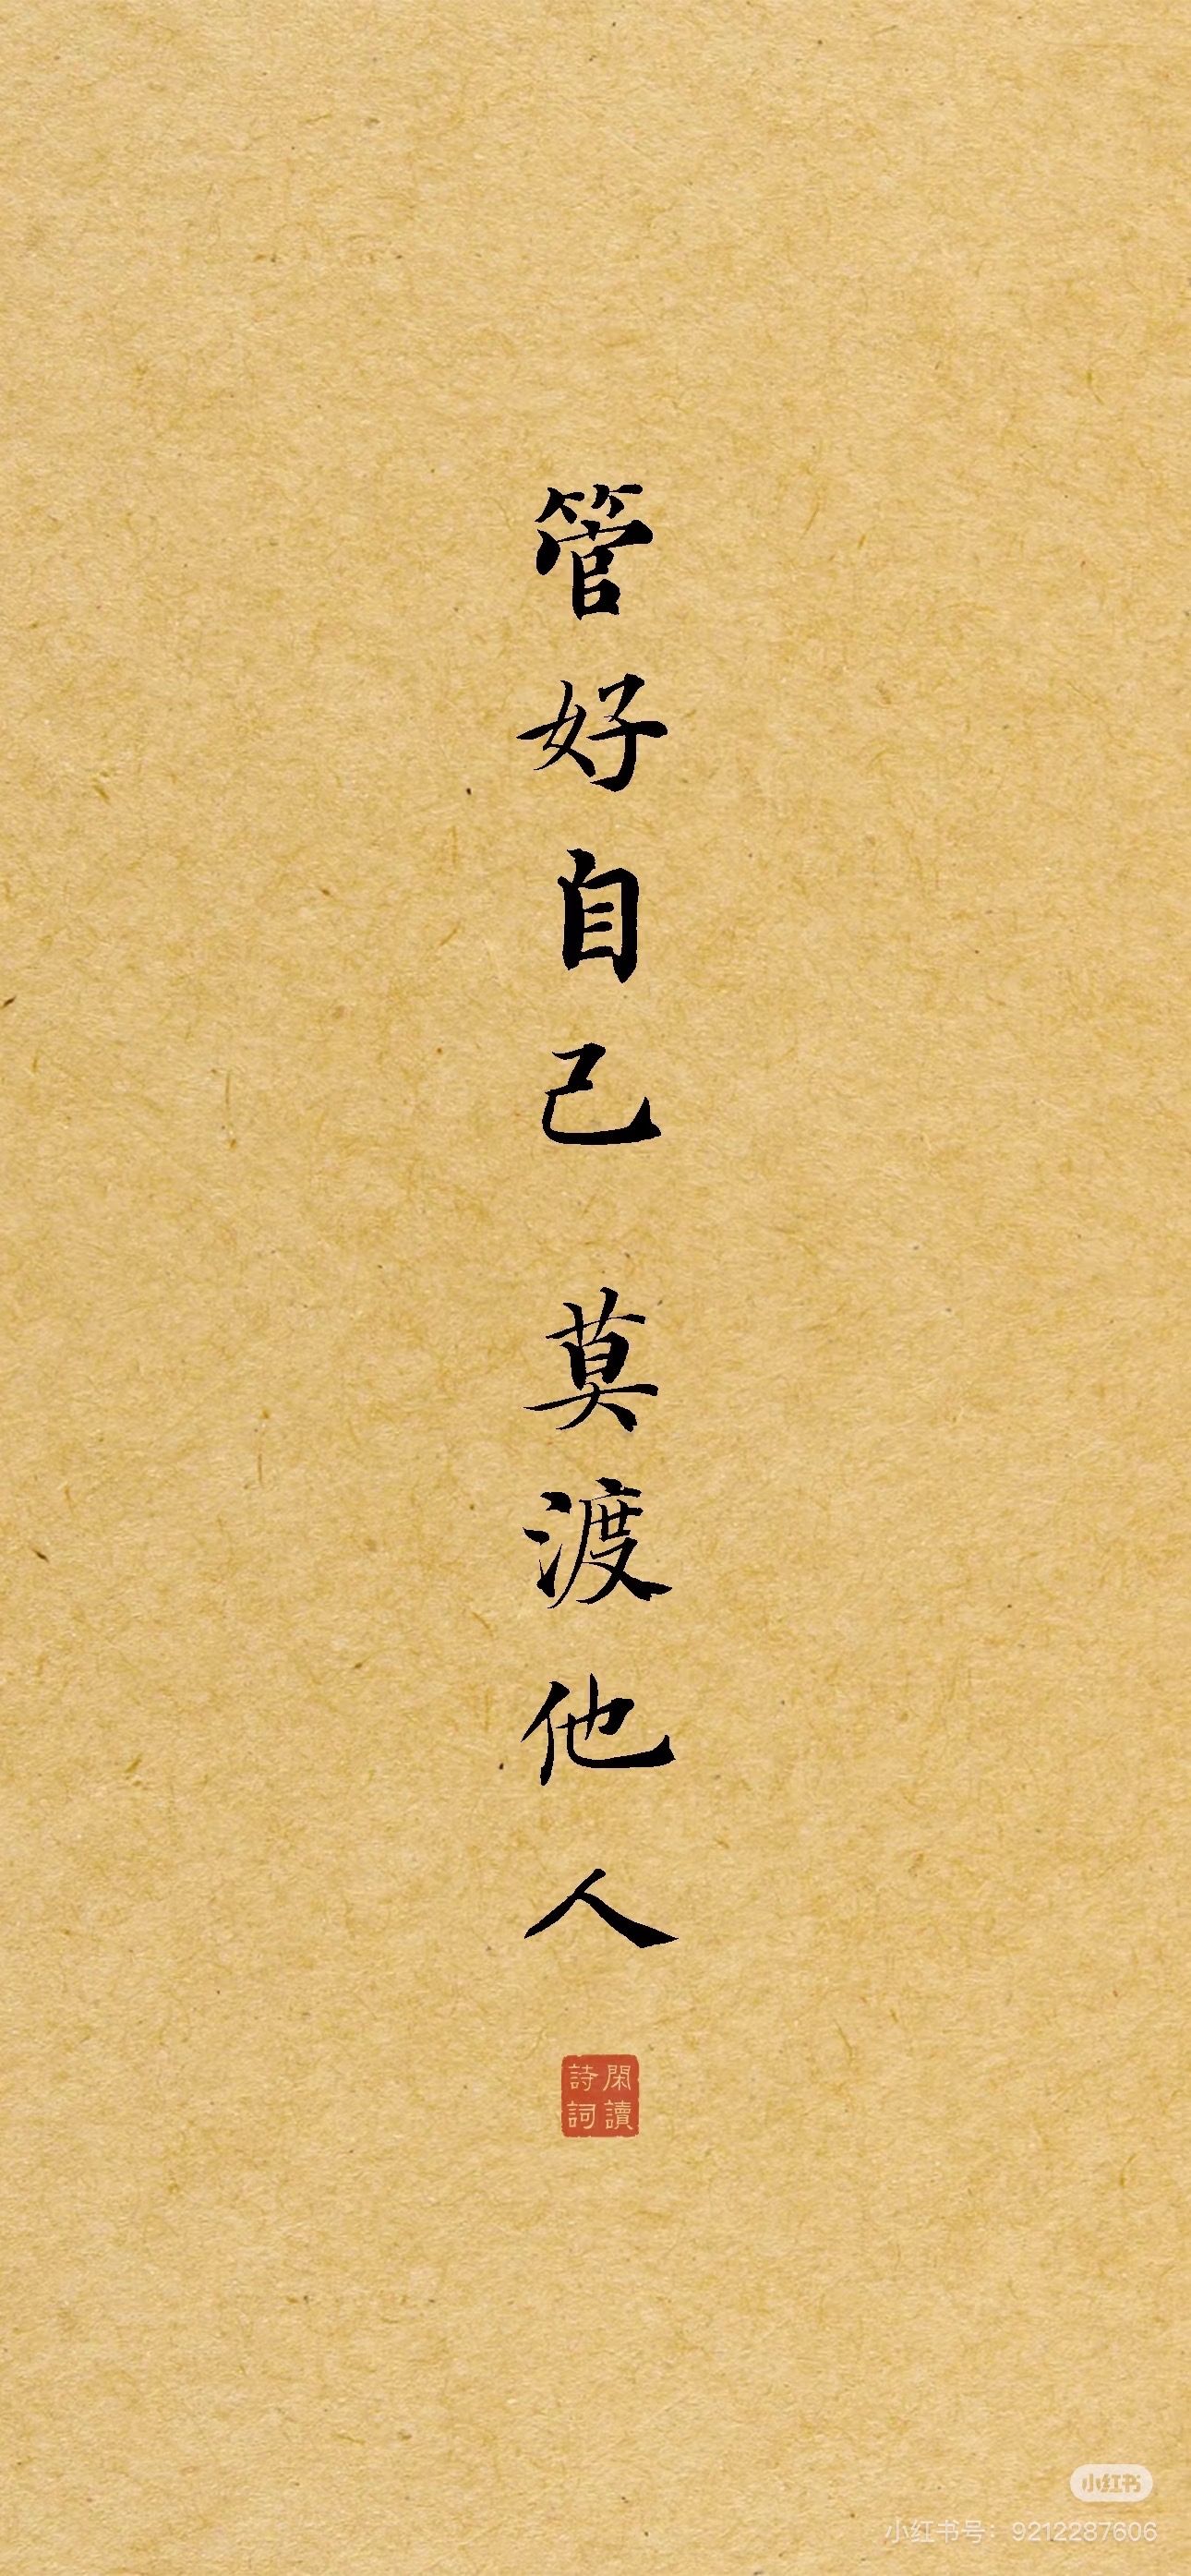 管好自己 莫渡他人
閑讀詩詞
小红书
小红书号：9212287606